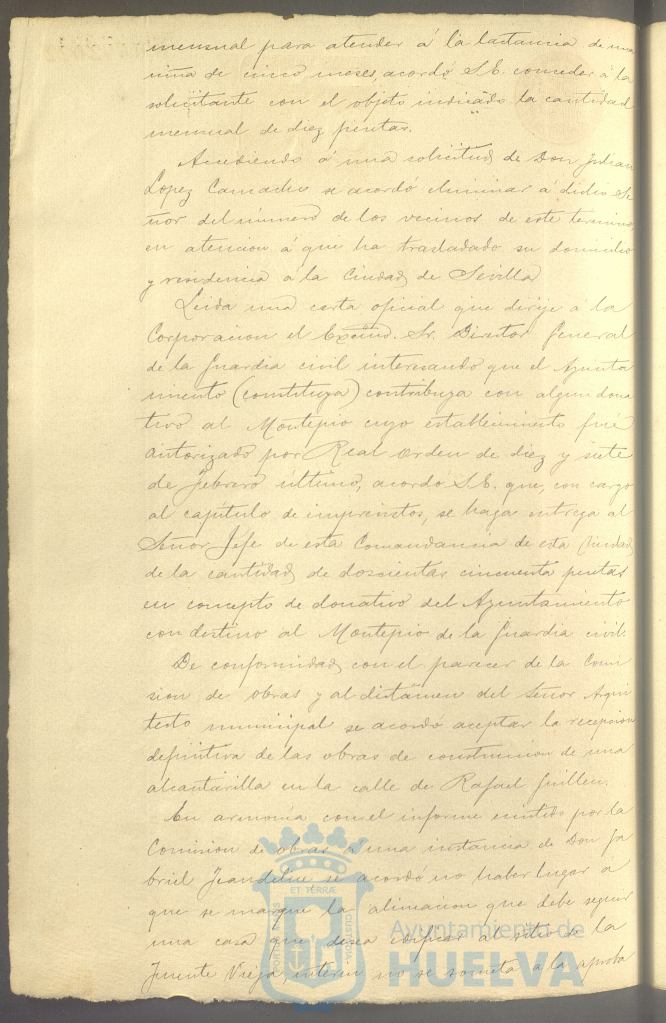 mensual para atender á la lactancia de una
niña de cinco meses, acordó S.E. conceder á la
solicitante con el objeto indicado la cantidad
mensual de diez pesetas.
Accediendo á una solicitud de Don Julian
Lopez Camacho se acordó eliminar á dicho Se
ñor del número de los vecinos de este termino,
en atencion á que ha trasladado su domicilio
y residencia á la Ciudad de Sevilla
Leida una carta oficial que dirije á la
Corporacion el Excmo. Sr. Director General
de la Guardia civil interesando que el Ayunta
miento (constituya) contribuya con algun dona
tivo al Montepio cuyo establecimiento fué
autorizado por Real orden de diez y siete
de Febrero último, acordó S.E. que, con cargo
al capítulo de imprevistos, se haga entrega al
Señor Jefe de esta Comandancia de esta Ciudad
de la cantidad de doscientas cincuenta pesetas
en concepto de donativo del Ayuntamiento
con destino al Montepio de la Guardia civil.
De conformidad con el parecer de la Comi
sion de obras y al dictámen del Señor Arqui
tecto municipal se acordó aceptar la recepcion
definitiva de las obras de construccion de una
alcantarilla en la calle de Rafael Guillen.
En armonía con el informe emitido por la
Comision de obras a una instancia de Don Ga
briel se acordó no haber lugar á
que se marque la alineacion que debe seguir
una casa que desea edificar al sitio de la
Fuente Vieja, interin no se someta á la aproba
ET TERRÆ
PORTUS MARIS
CUSTODIA
Ayuntamiento de
HUELVA